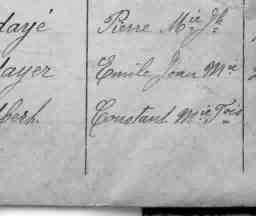 dayé Pierre Mie Jh
dayer Emile Jean Me
bherh. Constant Mie Fois